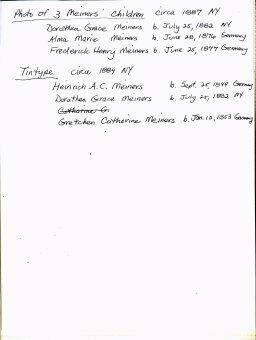 Photo of 3 Meiners' Children circa 1887 NY
Dorothea Grace Meiners b. July 25, 1882 NY
Alma Marie Meiners b. June 28, 1876 Germany
Frederick Henry Meiners b. June 25, 1877 Germany
Tintype circa 1884 NY
Heinrich A.C. Meiners b. Sept. 25, 1849 Germany
Dorothea Grace Meiners b. July 25, 1882 NY
Catharine Gr
Gretchen Catharine Meiners b. Jan. 10, 1853 Germany